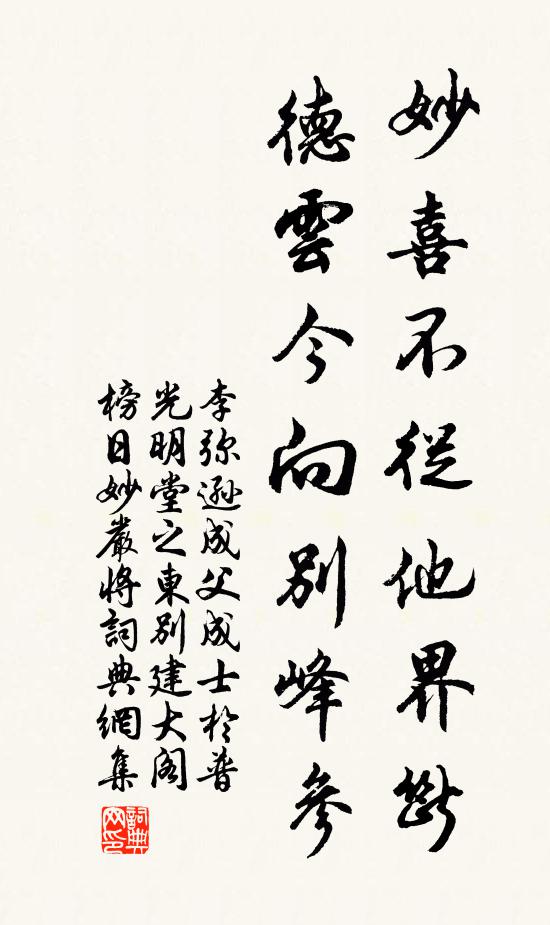 妙喜不從他界斷
德雲今向別峰參
李弥遜成父成士於普
光明堂之東別建大阁
榜日妙嚴將詞典網集
詞典网印